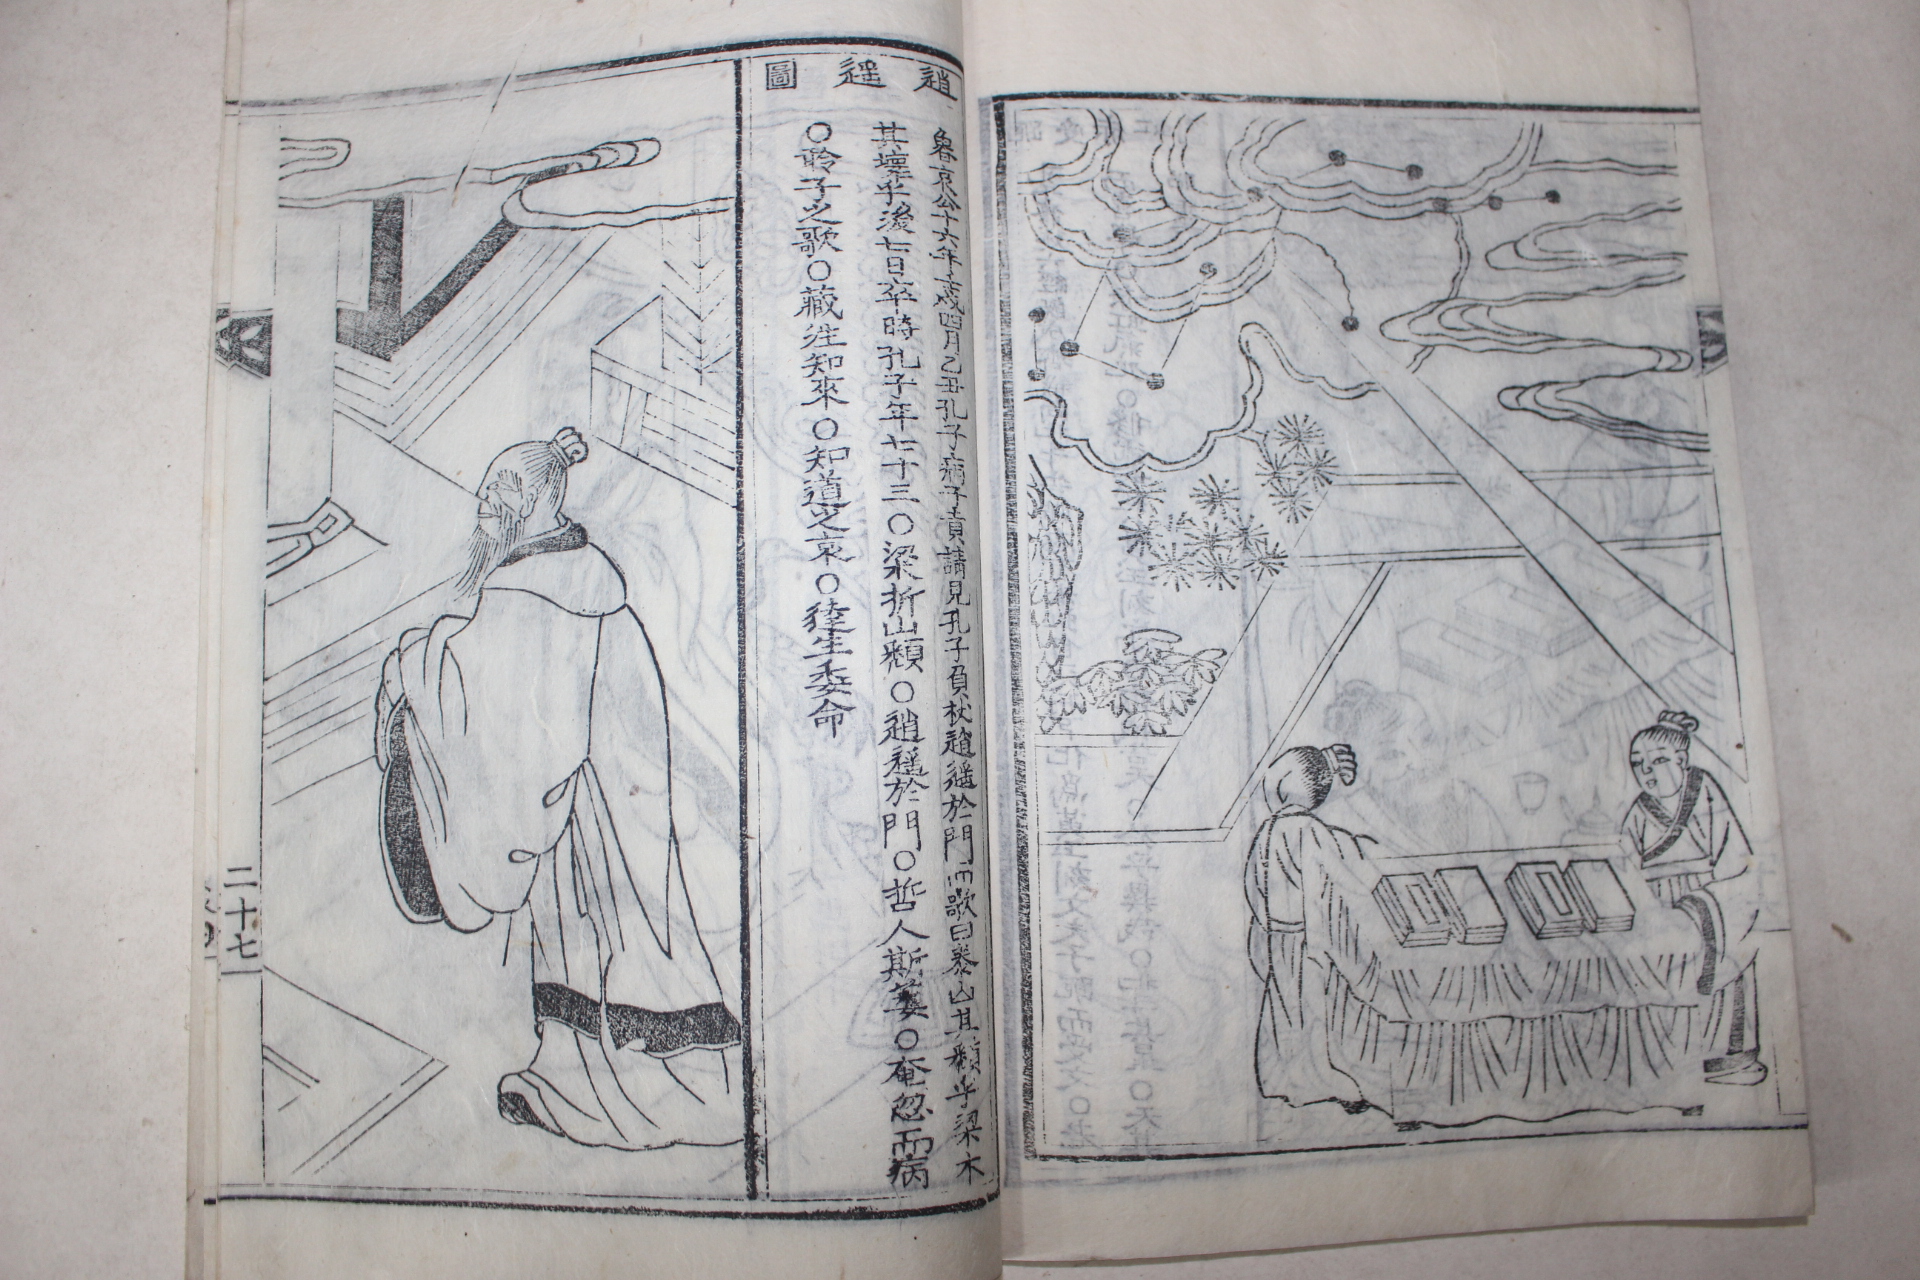 逍遥圖
魯哀公十六年壬戌四月乙丑孔子病子貢請見孔子負杖逍遥於門而歌曰泰山其頹乎梁木
其壞乎後七日卒時孔子年七十三〇梁折山頹〇逍遥於門〇哲人斯萎〇奄忽而病
〇聆子之歌〇藏往知來〇知道之哀〇逹生委命
二十七